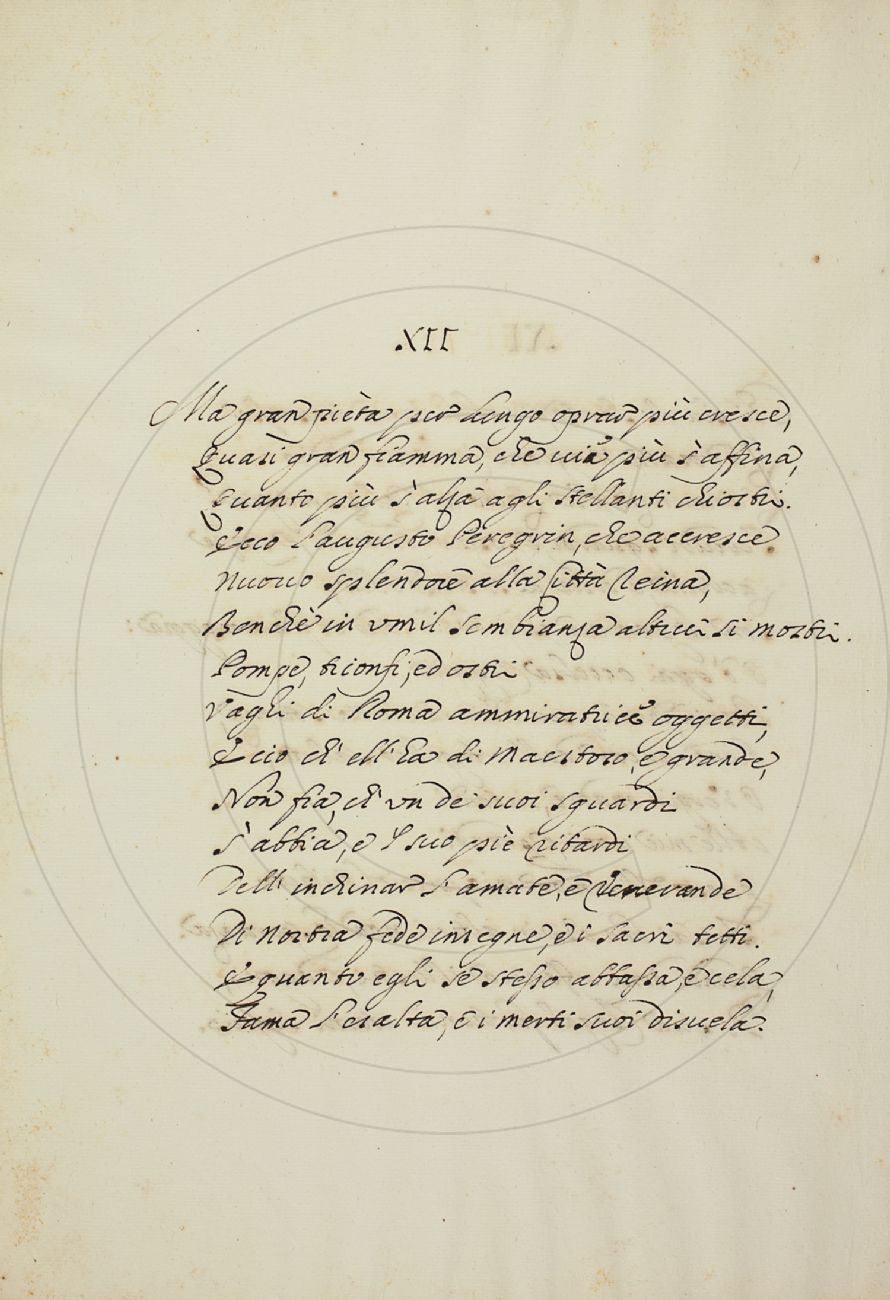 XII
Ma gran pièta per lungo oprar più cresce,
Quasi gran fiamma, che uia più s'affina,
Quanto più s'alza agli stellanti chiostri.
Ecco l'augusto Peregrin, che accresce
Nuouo splendore alla Città Reina,
Benchè in vmil sembianza altrui si mostri.
Pompe, trionfi, ed ostri
Vaghi di Roma ammiratrice oggetti,
E cio ch'ell'ha di maestoso, e grande,
Non fia, ch'vn de' suoi sguardi
S'abbia, e 'l suo piè ritardi
Dell'inchinar l'amate, e Venerande
Di nostra fede insegne, e i sacri tetti.
E quanto egli se stesso abbassa, e cela,
Fama l'esalta, e i merti suoi disuela.